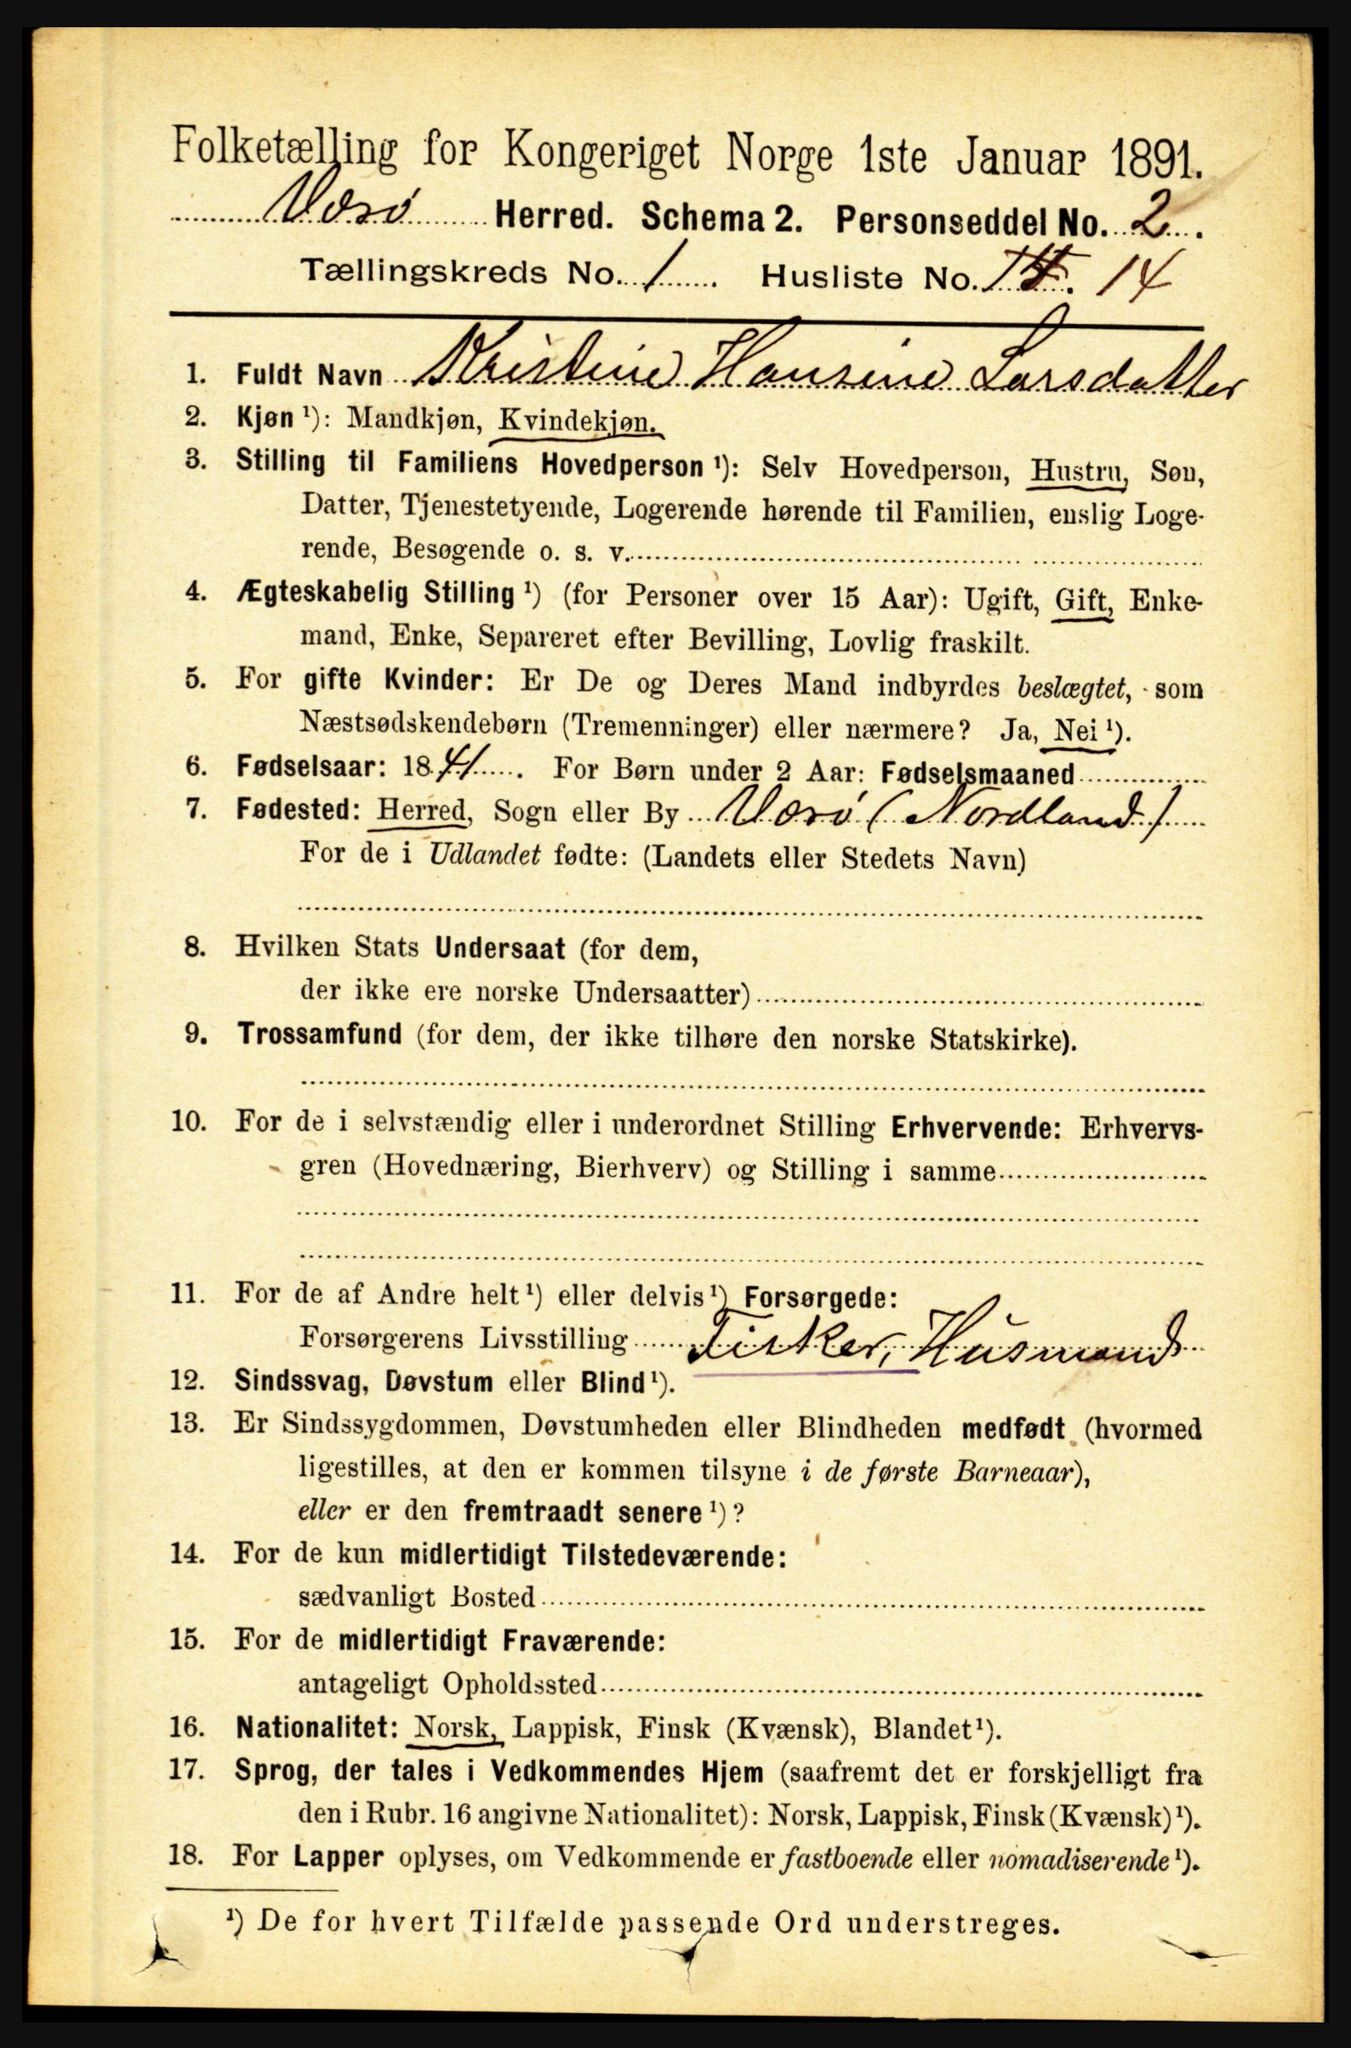 Folketælling for Kongeriget Norge 1ste Januar 1891.
Værø Herred. Schema 2. Personseddel No. 2.
Tællingskreds No. 1. Husliste No. 14. 14
1. Fuldt Navn Kristine Hansine Larsdatter
2. Kjøn ¹): Mandkjøn, Kvindekjøn.
3. Stilling til Familiens Hovedperson ¹): Selv Hovedperson, Hustru, Søn,
Datter, Tjenestetyende, Logerende hørende til Familien, enslig Loge-
rende, Besøgende o. s. v.
4. Ægteskabelig Stilling ¹) (for Personer over 15 Aar): Ugift, Gift, Enke-
mand, Enke, Separeret efter Bevilling, Lovlig fraskilt.
5. For gifte Kvinder: Er De og Deres Mand indbyrdes beslægtet, som
Næstsødskendebørn (Tremenninger) eller nærmere? Ja, Nei ¹).
6. Fødselsaar: 1841. For Børn under 2 Aar: Fødselsmaaned
7. Fødested: Herred, Sogn eller By Værø (Nordland)
For de i Udlandet fødte: (Landets eller Stedets Navn)
8. Hvilken Stats Undersaat (for dem,
der ikke ere norske Undersaatter)
9. Trossamfund (for dem, der ikke tilhøre den norske Statskirke).
10. For de i selvstændig eller i underordnet Stilling Erhvervende: Erhvervs-
gren (Hovednæring, Bierhverv) og Stilling i samme
11. For de af Andre helt ¹) eller delvis ¹) Forsørgede:
Forsørgerens Livsstilling Fisker, Husmand
12. Sindssvag, Døvstum eller Blind ¹).
13. Er Sindssygdommen, Døvstumheden eller Blindheden medfødt (hvormed
ligestilles, at den er kommen tilsyne i de første Barneaar),
eller er den fremtraadt senere ¹)?
14. For de kun midlertidigt Tilstedeværende:
sædvanligt Bosted
15. For de midlertidigt Fraværende:
antageligt Opholdssted
16. Nationalitet: Norsk, Lappisk, Finsk (Kvænsk), Blandet ¹).
17. Sprog, der tales i Vedkommendes Hjem (saafremt det er forskjelligt fra
den i Rubr. 16 angivne Nationalitet): Norsk, Lappisk, Finsk (Kvænsk) ¹).
18. For Lapper oplyses, om Vedkommende er fastboende eller nomadiserende ¹).
¹) De for hvert Tilfælde passende Ord understreges.